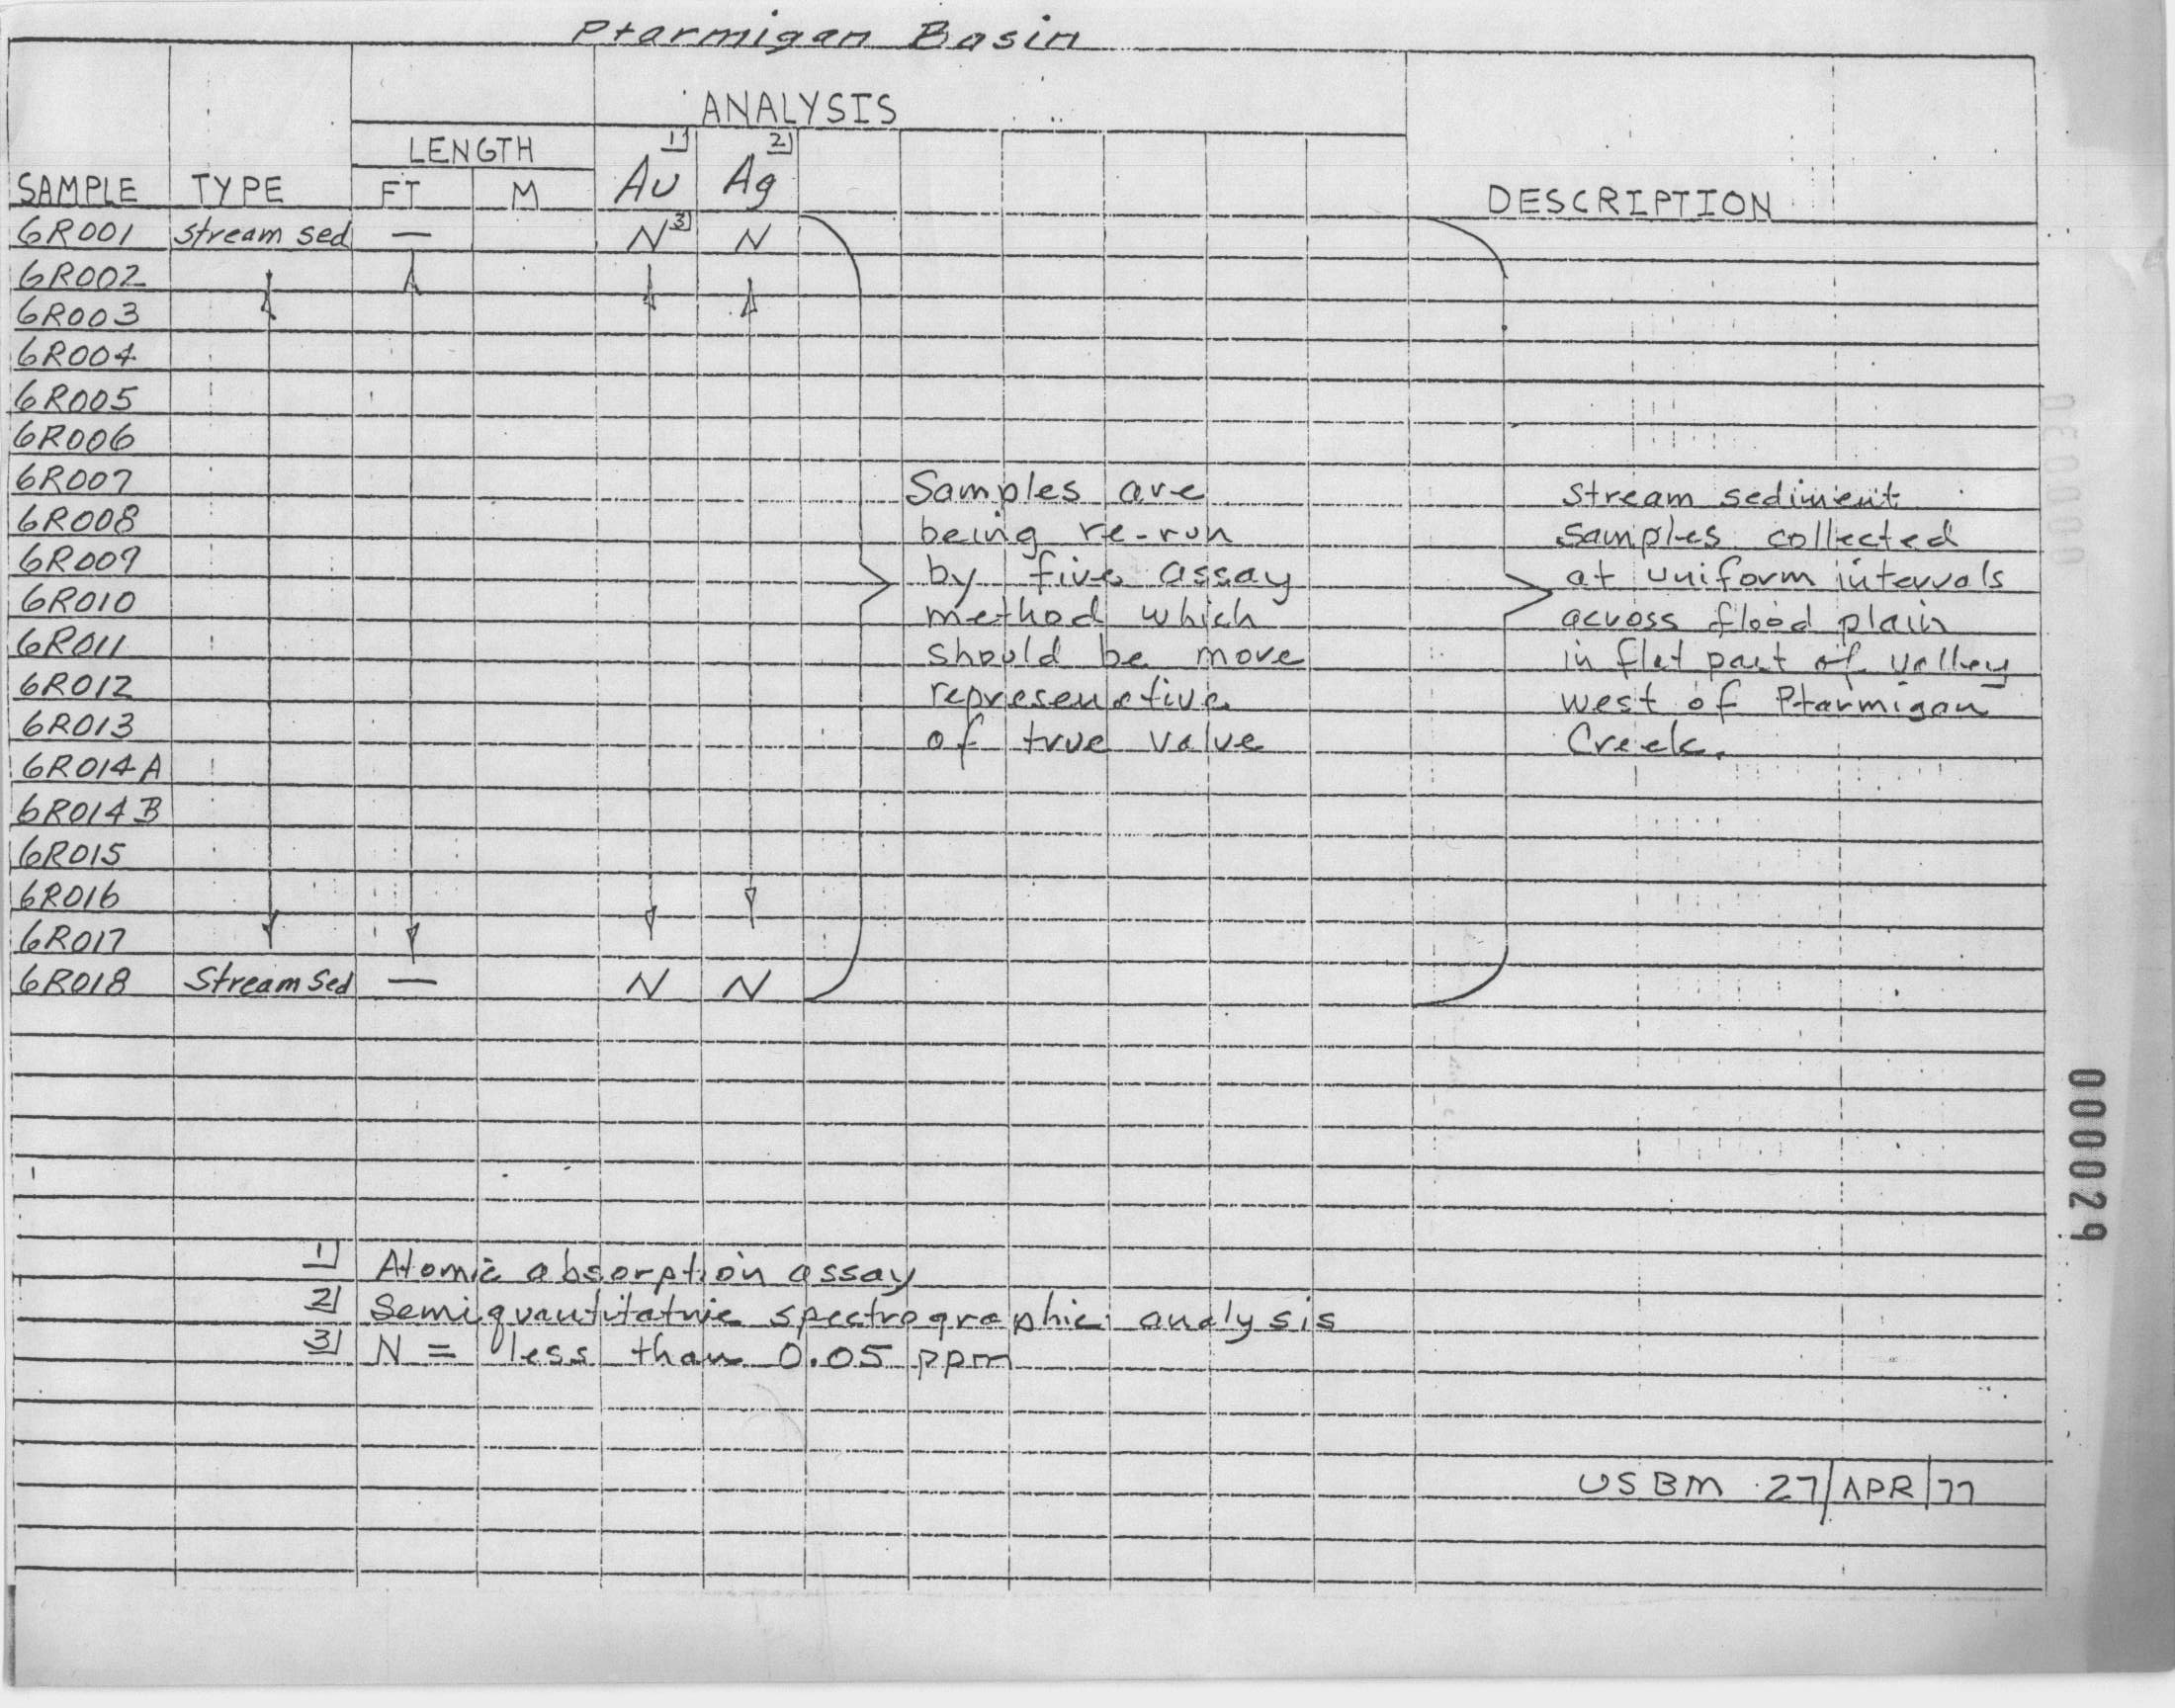 Ptarmigan Basin
ANALYSIS
LENGTH 1) 2)
SAMPLE TYPE FT M Au Ag DESCRIPTION
6R001 Stream sed — N 3) N
6R002
6R003
6R004
6R005
6R006
6R007 Samples are Stream sediment
6R008 being re-run samples collected
6R009 by fire assay at uniform intervals
6R010 method which across flood plain
6R011 should be more in flat part of valley
6R012 represenative west of Ptarmigan
6R013 of true value Creek.
6R014A
6R014B
6R015
6R016
6R017
6R018 Stream Sed — N N
1) Atomic absorption assay
2) Semiquantitative spectrographic analysis
3) N = less than 0.05 ppm
USBM 27/APR/77
000029
000030